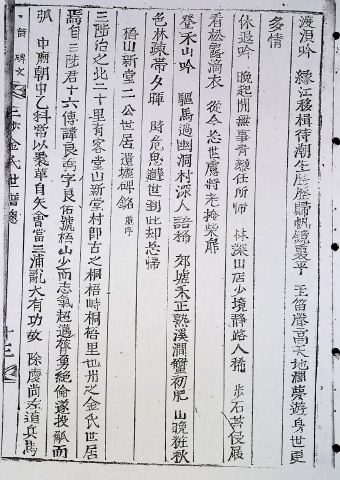 渡湏吟 綠江移楫待潮生 歷歷歸帆鏡裏平 玉笛聲高天地濶 夢遊身世更
多情
休退吟 晚起閒無事 靑藜任所師 林深山店少 境靜路人稀 步石苔侵屐
看松露滴衣 從今忘世慮 將老掩柴扉
登禾山吟 驅馬過幽洞 村深人語稀 郊墟禾正熟 溪澗蟹初肥 山晚粧秋
色 林疎帶夕暉 時危思避世 到此却忘歸
梧山新堂二公世居遺墟碑銘 並序
三陟治之北二十里有客堂山新堂村卽古之桐梧峙桐梧里也州之金氏世居
焉自三陟君十六傳諱良 字良佑號梧山少而志氣超邁膂勇絶倫遂投觚而
弧 中廟朝中乙科常以裹革自矢會當三浦亂大有功效 除慶尙左道兵馬
詩 碑文 三陟金氏世譜總 十三